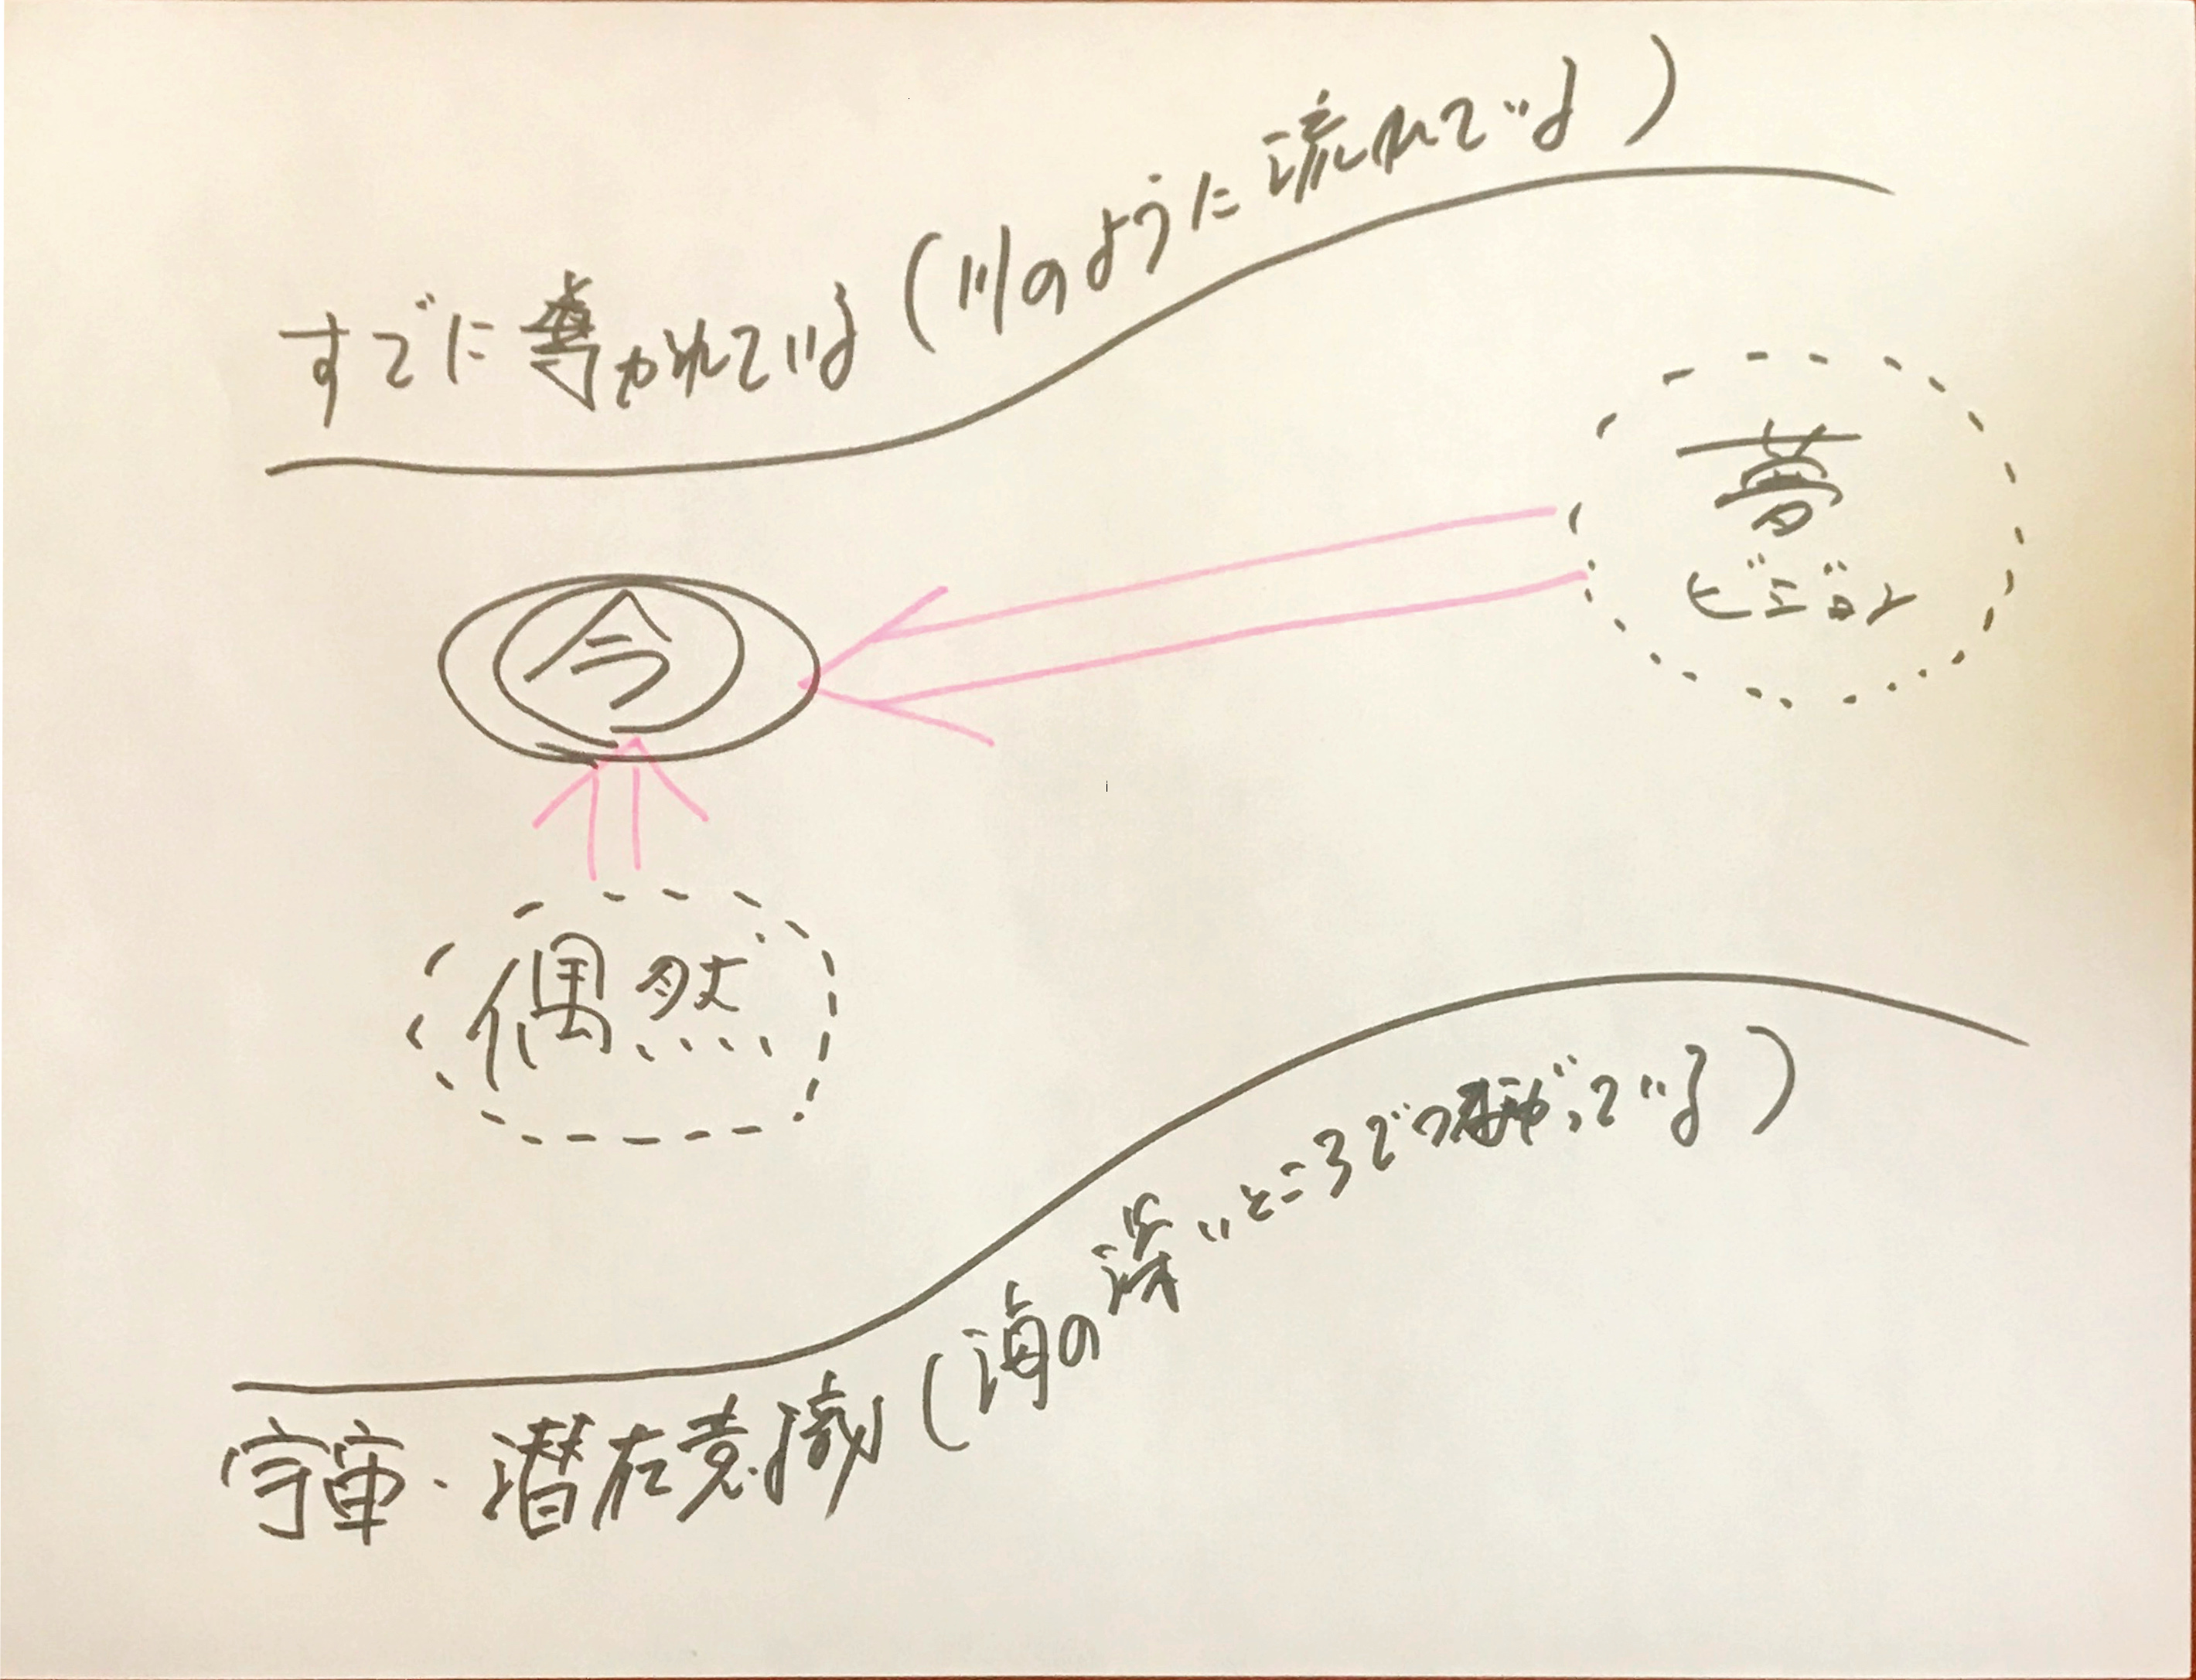 すでに導かれている(川のように流れている)
夢
ビジョン
今
偶然
宇宙・潜在意識(海の深いところでつながっている)